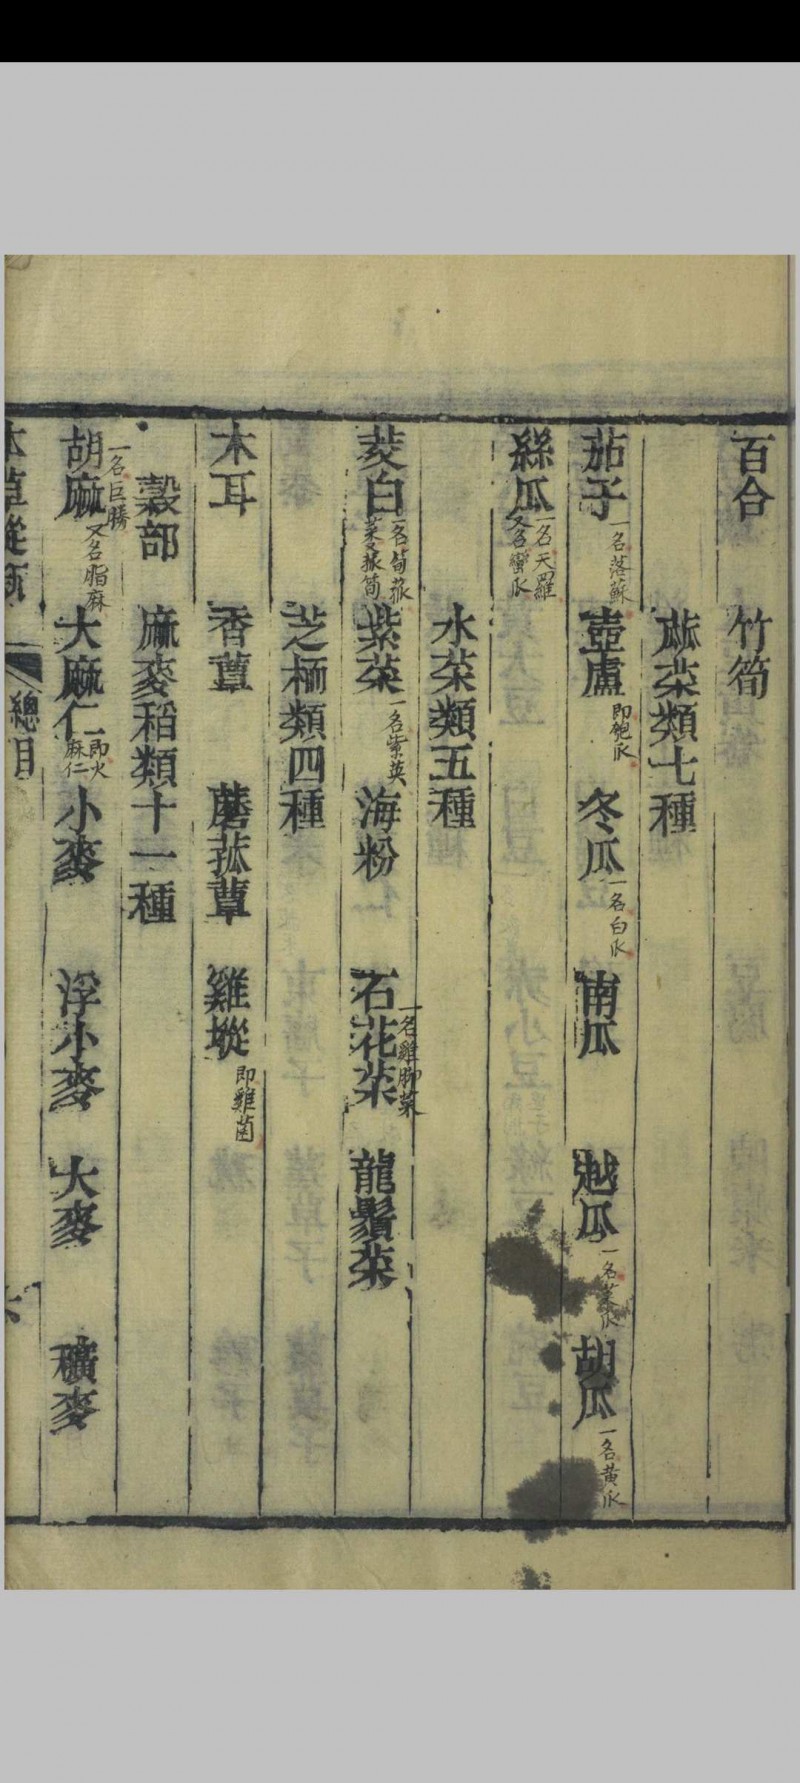 百合　竹筍
蓏菜類七種
茄子一名落蘇　壺盧即匏瓜　冬瓜一名白瓜　南瓜　越瓜一名菜瓜　胡瓜一名黄瓜
絲瓜一名天羅又名蠻瓜
水菜類五種
菱白一名菰菰筍　紫菜一名紫英　海粉　石花菜一名雞脚菜　龍鬚菜
芝栭類四種
木耳　香蕈　蘑菰蕈　雞㙡即雞菌
穀部　麻麥稻類十一種
胡麻一名巨勝又名脂麻　大麻仁即火麻仁　小麥　浮小麥　大麥　穬麥
本草從新　總目